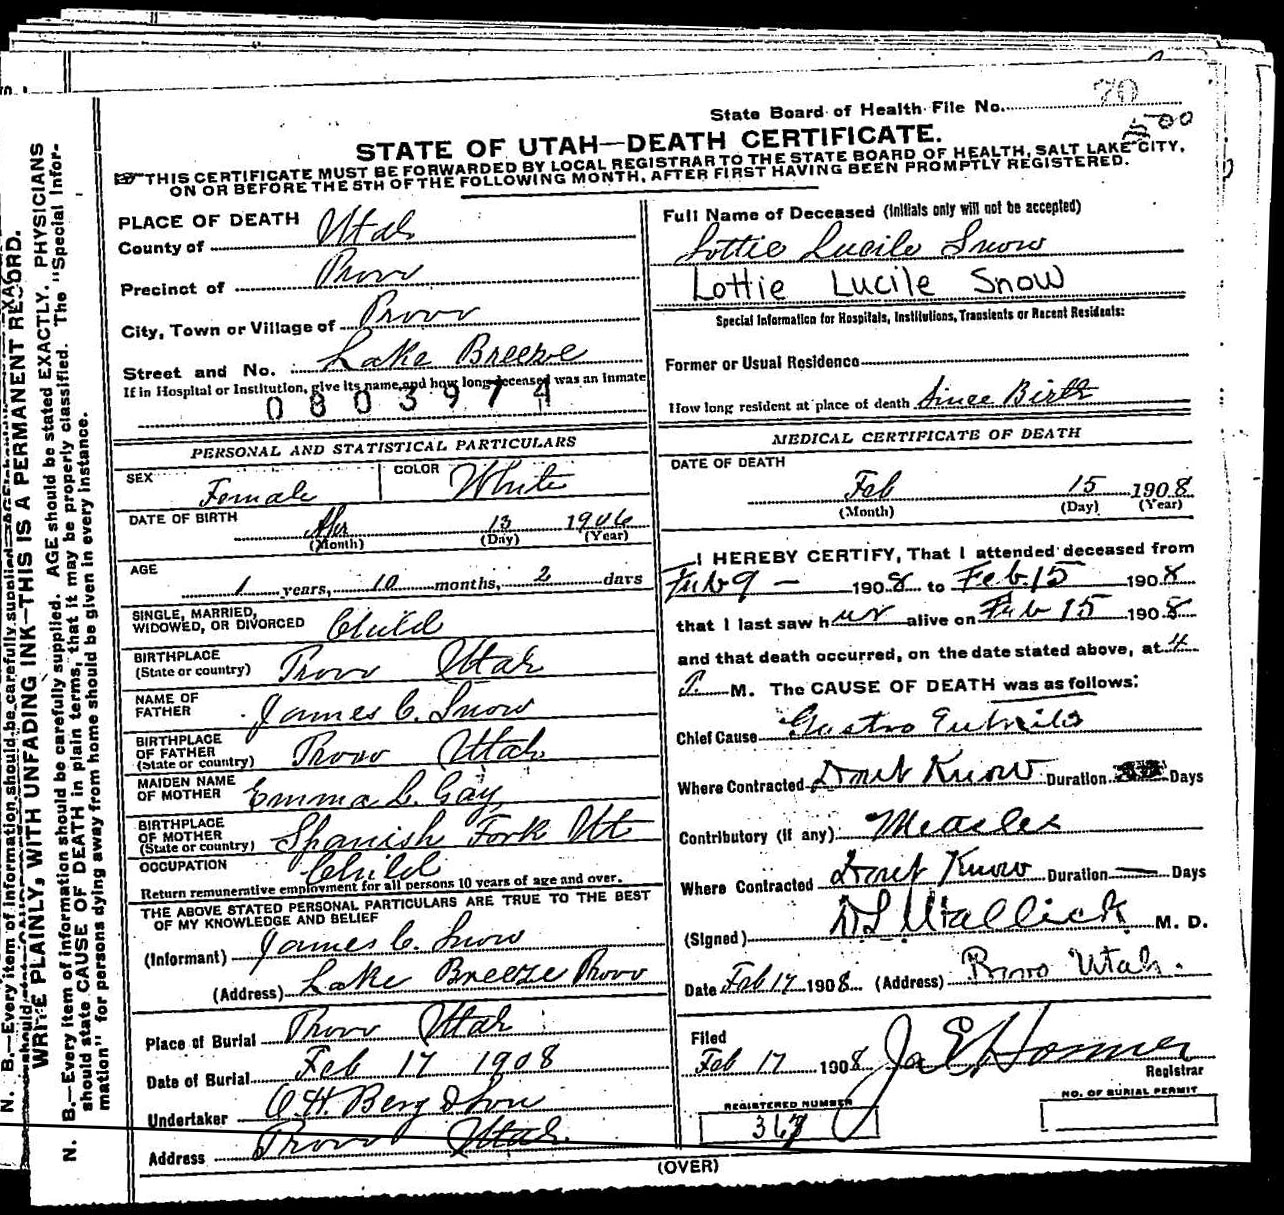 State Board of Health File No. 70
500
STATE OF UTAH—DEATH CERTIFICATE.
THIS CERTIFICATE MUST BE FORWARDED BY LOCAL REGISTRAR TO THE STATE BOARD OF HEALTH, SALT LAKE CITY,
ON OR BEFORE THE 5TH OF THE FOLLOWING MONTH, AFTER FIRST HAVING BEEN PROMPTLY REGISTERED.
PLACE OF DEATH
County of Utah
Precinct of Provo
City, Town or Village of Provo
Street and No. Lake Breeze
If in Hospital or Institution, give its name and how long deceased was an inmate
0803974
PERSONAL AND STATISTICAL PARTICULARS
SEX Female COLOR White
DATE OF BIRTH Apr 13 1906
(Month) (Day) (Year)
AGE
1 years, 10 months, 2 days
SINGLE, MARRIED,
WIDOWED, OR DIVORCED Child
BIRTHPLACE
(State or country) Provo Utah
NAME OF
FATHER James C. Snow
BIRTHPLACE
OF FATHER
(State or country) Provo Utah
MAIDEN NAME
OF MOTHER Emma L. Gay
BIRTHPLACE
OF MOTHER
(State or country) Spanish Fork Ut
OCCUPATION Child
Return remunerative employment for all persons 10 years of age and over.
THE ABOVE STATED PERSONAL PARTICULARS ARE TRUE TO THE BEST
OF MY KNOWLEDGE AND BELIEF
(Informant) James C. Snow
(Address) Lake Breeze Provo
Place of Burial Provo Utah
Date of Burial Feb 17 1908
Undertaker O. H. Berg & Son
Address Provo Utah
Full Name of Deceased (Initials only will not be accepted)
Lottie Lucile Snow
Lottie Lucile Snow
Special Information for Hospitals, Institutions, Transients or Recent Residents:
Former or Usual Residence
How long resident at place of death Since Birth
MEDICAL CERTIFICATE OF DEATH
DATE OF DEATH
Feb 15 1908
(Month) (Day) (Year)
I HEREBY CERTIFY, That I attended deceased from
Feb 9 — 1908 to Feb. 15 1908
that I last saw her alive on Feb 15 1908
and that death occurred, on the date stated above, at 4
P. M. The CAUSE OF DEATH was as follows:
Chief Cause Gastro Enteritis
Where Contracted Dont Know Duration Days
Contributory (if any) Measles
Where Contracted Dont Know Duration — Days
(Signed) M. D.
Date Feb 17 1908 (Address) Provo Utah.
Filed
Feb 17 1908
Registrar
REGISTERED NUMBER
367
NO. OF BURIAL PERMIT
(OVER)
WRITE PLAINLY, WITH UNFADING INK—THIS IS A PERMANENT RECORD.
N. B.—Every item of information should be carefully supplied. AGE should be stated EXACTLY. PHYSICIANS
should state CAUSE OF DEATH in plain terms, that it may be properly classified. The "Special Infor-
mation" for persons dying away from home should be given in every instance.
N. B.—Every item of information should be carefully supplied